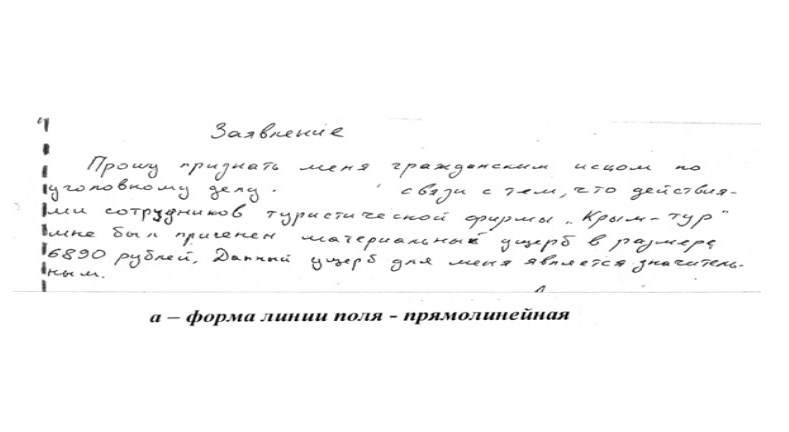 Заявление
Прошу признать меня гражданским исцом по
уголовному делу. связи с тем, что действия-
ми сотрудников туристической фирмы „Крым-тур"
мне был приченен материальный ущерб в размере
6890 рублей. Данный ущерб для меня является значитель-
ным.
а – форма линии поля - прямолинейная